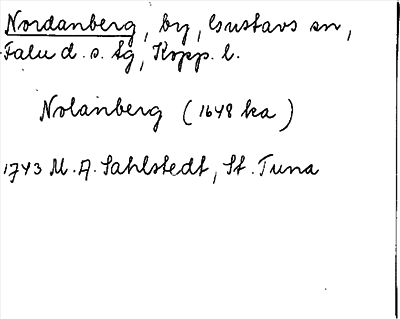 Nordanberg, by, Gustavs sn,
Falu d. s. tg, Kopp. l.
Nolanberg (1648 ka)
1743 M. A. Sahlstedt, St. Tuna